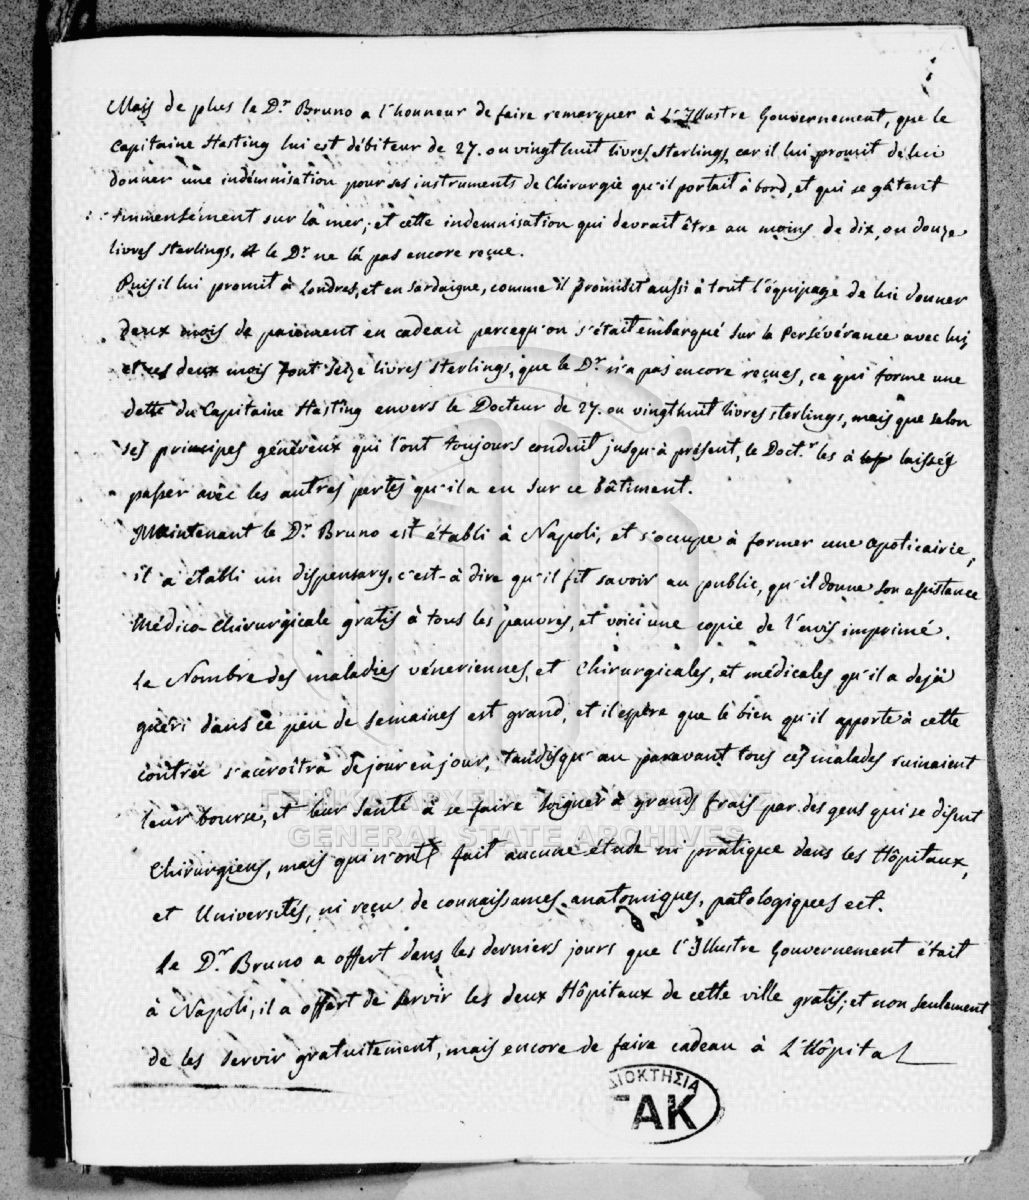 Mais de plus le Dr Bruno a l'honneur de faire remarquer à L'Illustre Gouvernement, que le
Capitaine Hasting lui est débiteur de 27. ou vingthuit livres sterlings, car il lui promit de lui
donner une indémnisation pour ses instruments de Chirurgie qu'il portait à bord, et qui se gâtent
immensément sur la mer; et cette indemnisation qui devrait être au moins de dix, ou douze
livres sterlings, le Dr ne là pas encore reçue.
Puis il lui promit à Londres, et en Sardaigne, comme il promisit aussi à tout l'équipage de lui donner
deux mois de paiement en cadeau parcequ'on s'était embarqué sur la Persévérance avec lui,
et ces deux mois font seize livres sterlings, que le Dr n'a pas encore reçues, ce qui forme une
dette du Capitaine Hasting envers le Docteur de 27. ou vingthuit livres sterlings, mais que selon
ses principes généreux qui l'ont toujours conduit jusqu'à présent, le Doct.r les à laissés
passer avec les autres pertes qu'il a eu sur ce bâtiment.
Maintenant le Dr Bruno est établi à Napoli, et s'occupe à former une apoticairie,
il a établi un dispensary, c'est-à dire qu'il fit savoir au public, qu'il donne son assistance
Médico-Chirurgicale gratis à tous les pauvres, et voici une copie de l'avis imprimé.
Le Nombre des maladies véneriennes, et Chirurgicales, et médicales qu'il a dejà
guéri dans ce peu de semaines est grand, et il espère que le bien qu'il apporte à cette
contrée s'accroîtra de jour en jour, tandisqu'au paravant tous ces malades ruinaient
leur bourse, et leur santé à se faire soigner à grands frais par des gens qui se disent
Chirurgiens, mais qui n'ont fait aucune étude ni pratique dans les Hôpitaux,
et Universités, ni reçu de connaissances anatomiques, patologiques ect.
Le Dr Bruno a offert dans les derniers jours que l'Illustre Gouvernement était
à Napoli, il a offert de servir les deux Hôpitaux de cette ville gratis; et non seulement
de les servir gratuitement, mais encore de faire cadeau à L'Hôpital
ΓΕΝΙΚΑ ΑΡΧΕΙΑ ΤΟΥ ΚΡΑΤΟΥΣ
GENERAL STATE ARCHIVES
ΙΔΙΟΚΤΗΣΙΑ
ΓΑΚ